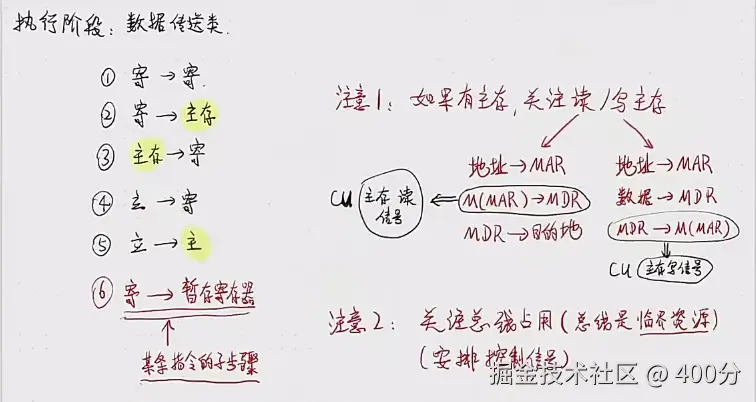 执行阶段：数据传送类.
① 寄→寄.
② 寄→主存
③ 主存→寄
④ 立→寄
⑤ 立→主
⑥ 寄→暂存寄存器
某条指令的子步骤
注意1：如果有主存,关注读/写主存
地址→MAR
M(MAR)→MDR
MDR→目的地
CU 主存读信号
地址→MAR
数据→MDR
MDR→M(MAR)
CU 主存写信号
注意2：关注总线占用(总线是临界资源)
(安排控制信号)
掘金技术社区 @ 400分